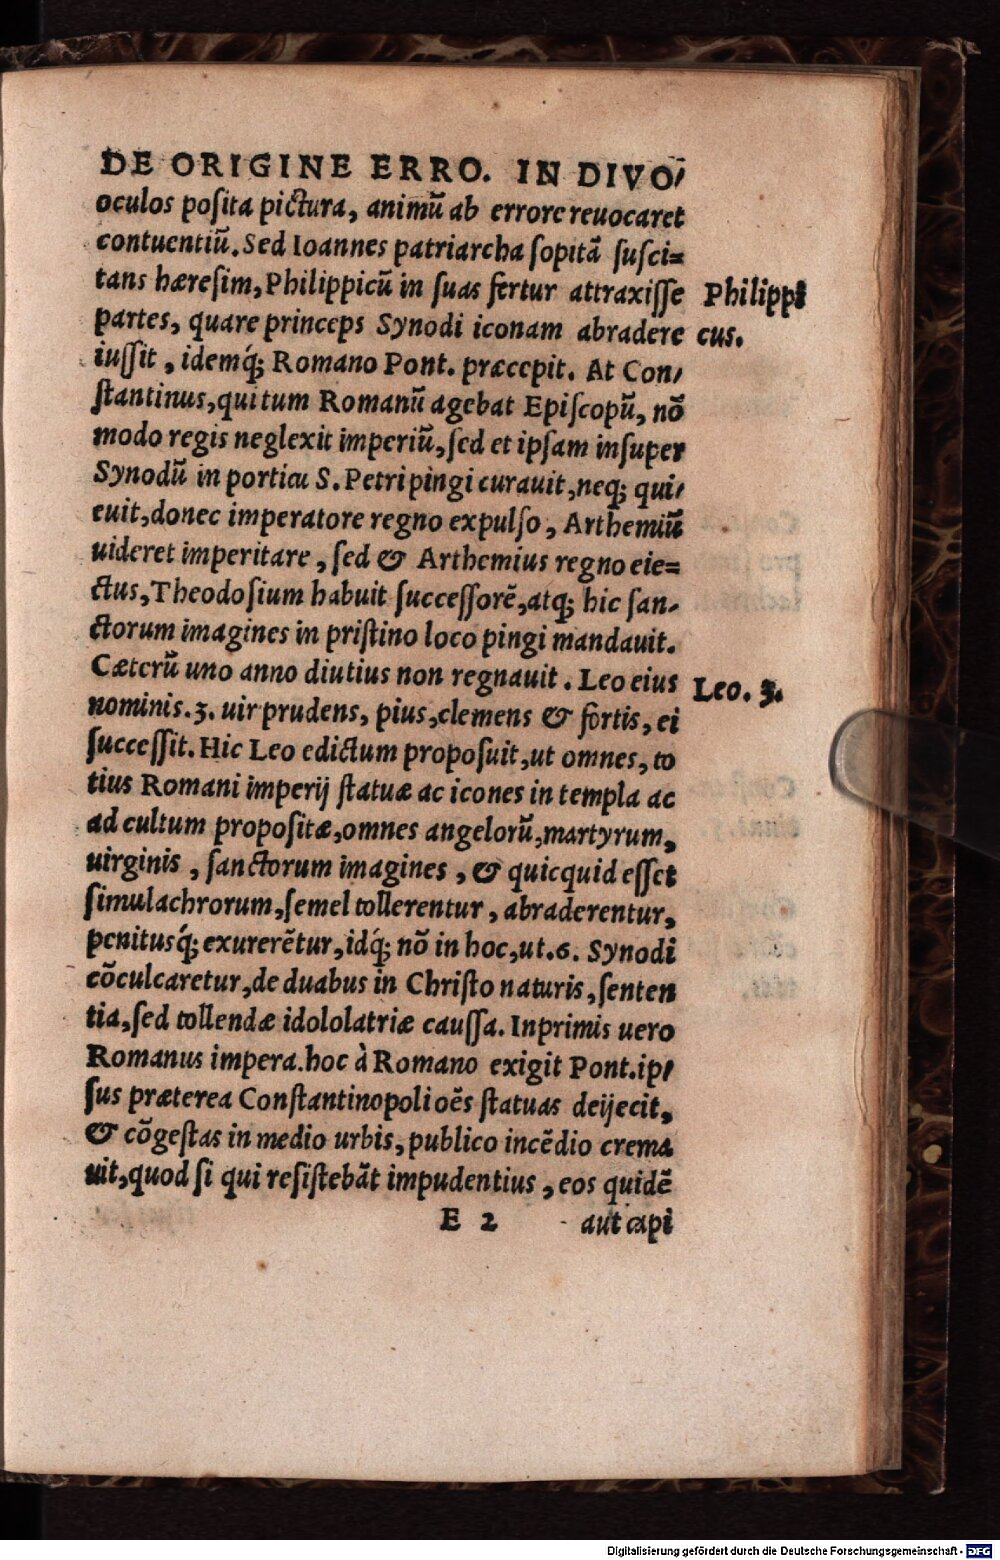 DE ORIGINE ERRO. IN DIVO⸗
oculos poſita pictura, animũ ab errore reuocaret
contuentiũ. Sed Ioannes patriarcha ſopitã ſuſci=
tans hæreſim, Philippicũ in ſuas fertur attraxiſſe
Philippi
partes, quare princeps Synodi iconam abradere
cus.
iuſſit, idemq́; Romano Pont. præcepit. At Con⸗
ſtantinus, qui tum Romanũ agebat Epiſcopũ, nõ
modo regis neglexit imperiũ, ſed et ipſam inſuper
Synodũ in porticu S. Petri pingi curauit, neq; qui⸗
euit, donec imperatore regno expulſo, Arthemiũ
uideret imperitare, ſed & Arthemius regno eie=
ctus, Theodoſium habuit ſucceſſorẽ, atq; hic ſan⸗
ctorum imagines in priſtino loco pingi mandauit.
Cæterũ uno anno diutius non regnauit. Leo eius
Leo. 3.
nominis. 3. uir prudens, pius, clemens & fortis, ei
ſucceſſit. Hic Leo edictum propoſuit, ut omnes, to
tius Romani imperij ſtatuæ ac icones in templa ac
ad cultum propoſitæ, omnes angelorũ, martyrum,
uirginis, ſanctorum imagines, & quicquid eſſet
ſimulachrorum, ſemel tollerentur, abraderentur,
penitusq́; exurerẽtur, idq́; nõ in hoc, ut. 6. Synodi
cõculcaretur, de duabus in Chriſto naturis, ſenten
tia, ſed tollendæ idololatriæ cauſſa. Inprimis uero
Romanus impera. hoc à Romano exigit Pont. ip⸗
ſus præterea Conſtantinopoli oẽs ſtatuas deijecit,
& cõgeſtas in medio urbis, publico incẽdio crema
uit, quod ſi qui reſiſtebãt impudentius, eos quidẽ
E 2 aut capi
Digitalisierung gefördert durch die Deutsche Forschungsgemeinschaft - DFG